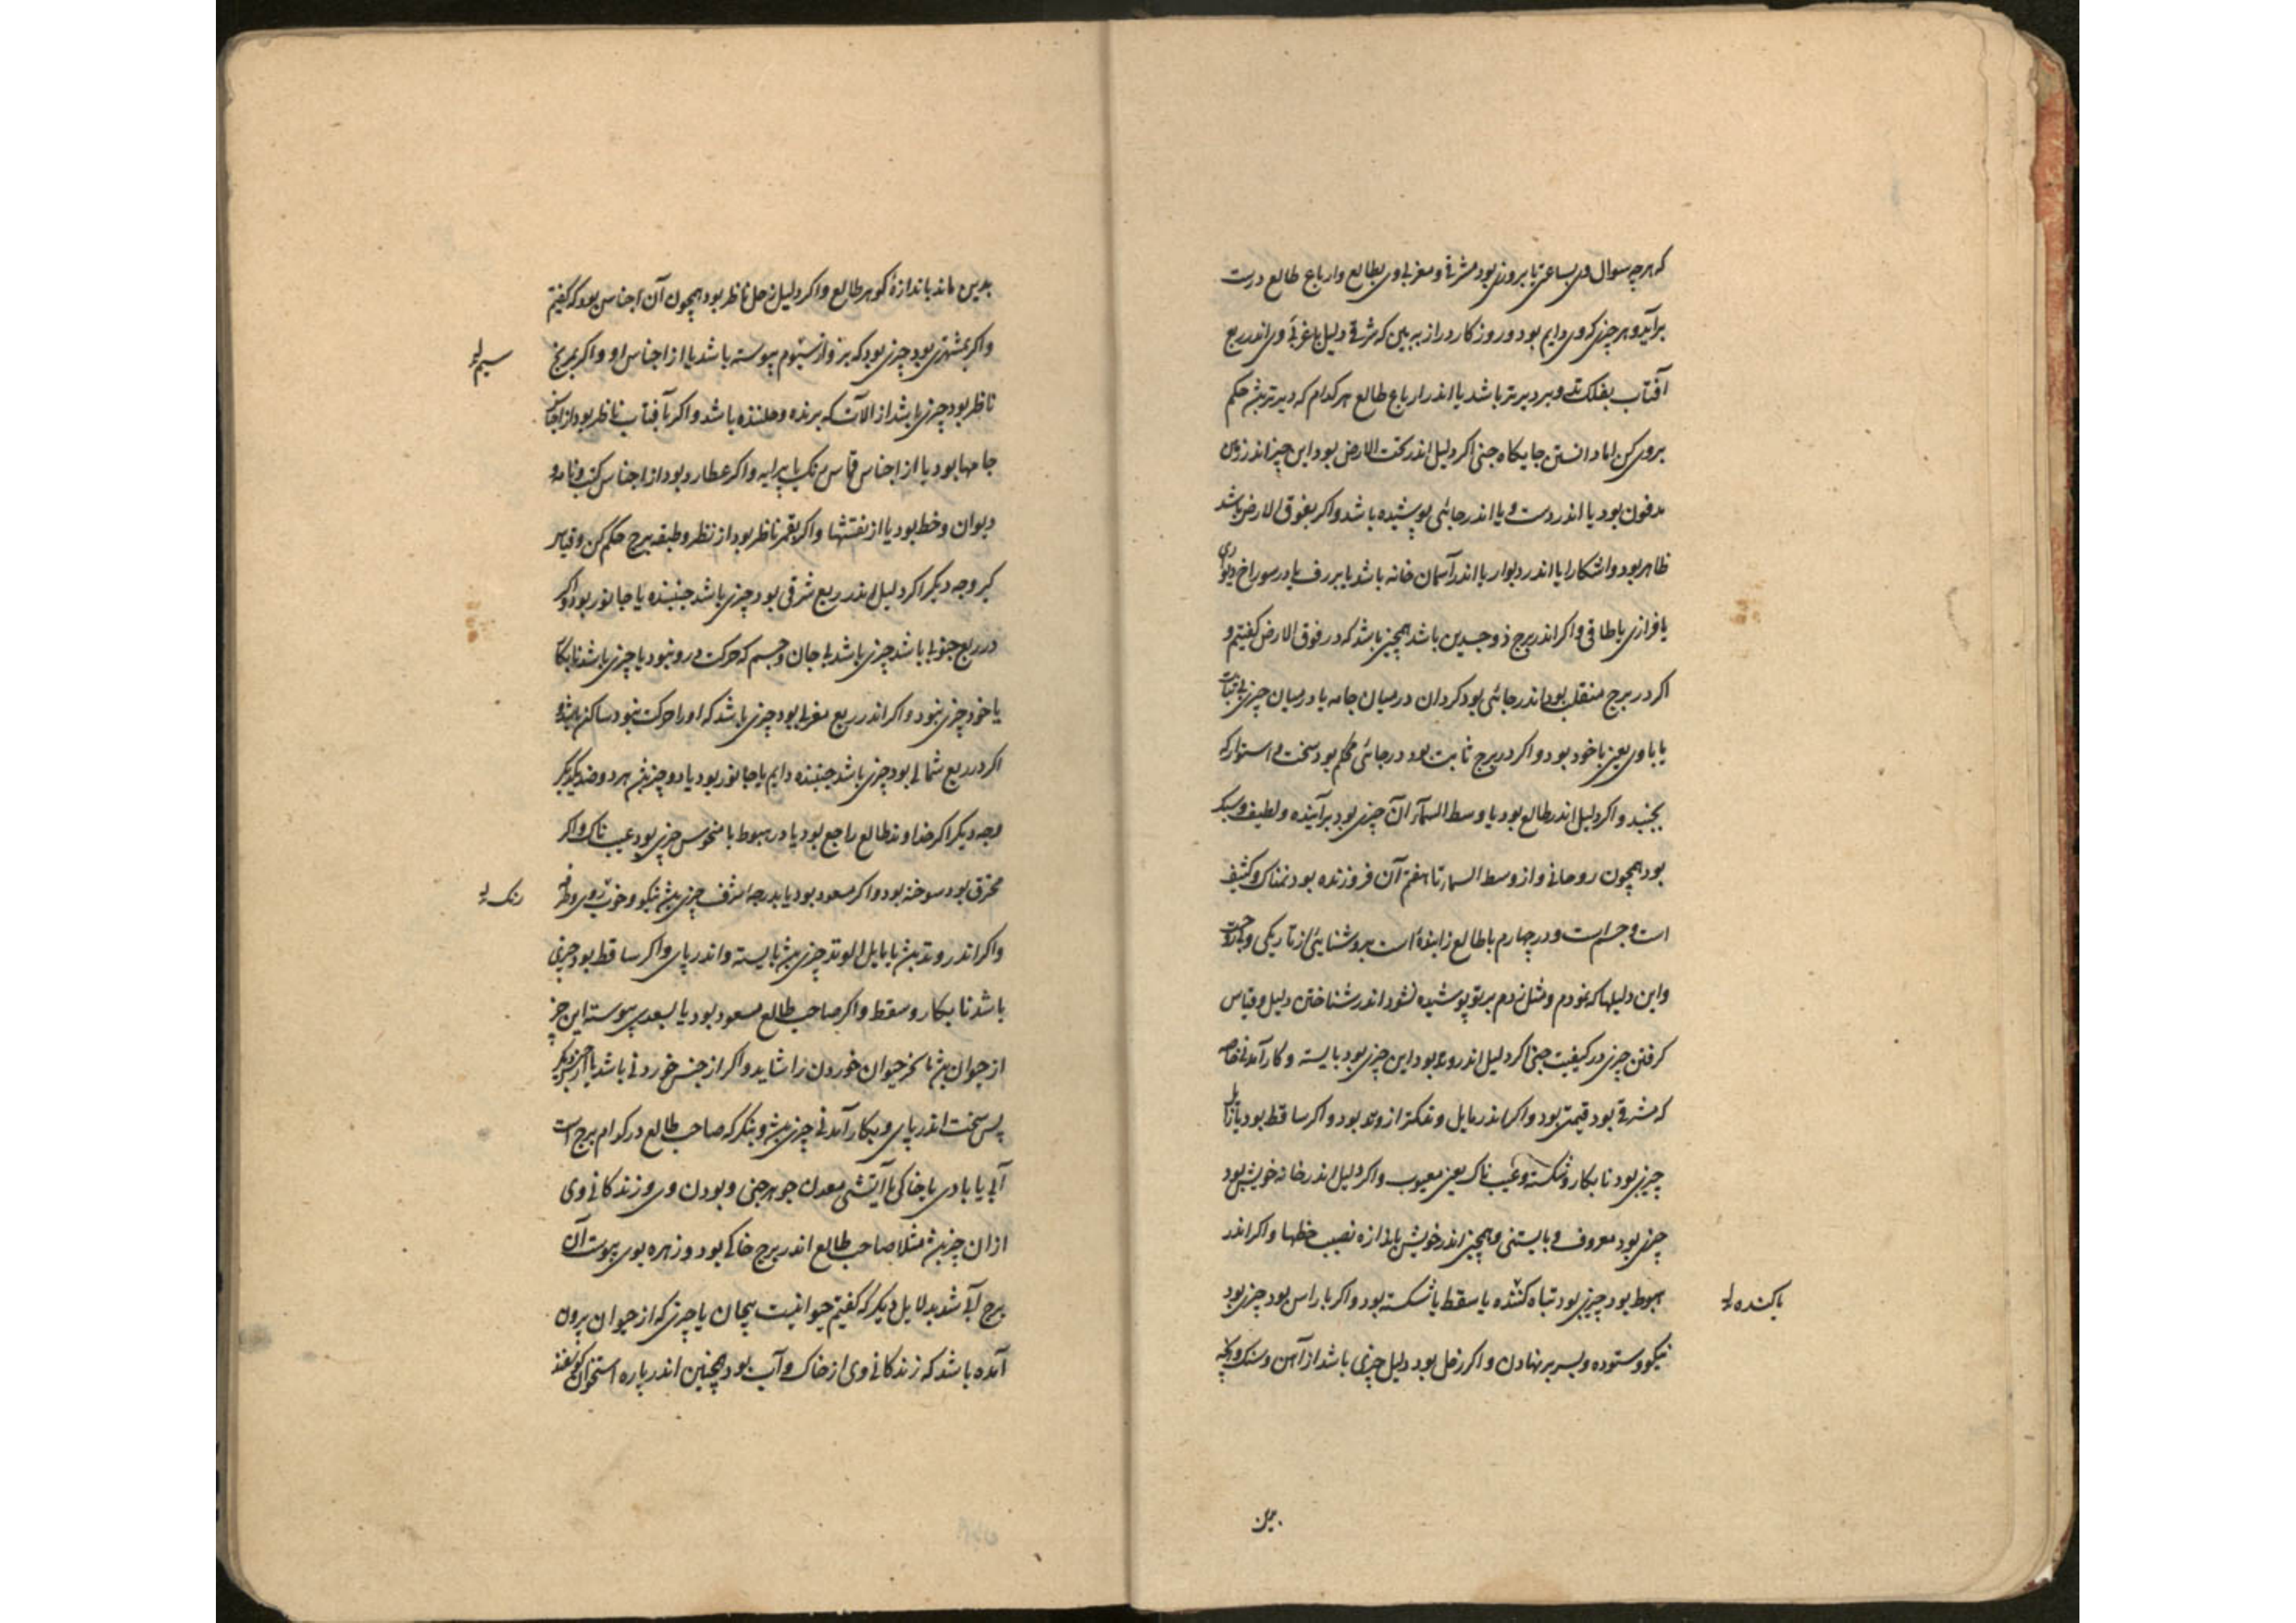 که هرچه سوال وی بساعتی یا بروزی بود مشرقی و مغربی وی بطالع و ارباع طالع درست
برآید و هر چیزی که وی دایم بود و روزکار دراز ببین که شرقی دلیل یا غربی وی اندر ربع
آفتاب بفلک و دیرتر باشد یا اندر ارباع طالع هر کدام که دیرتر بش حکم
بروی کن اما دانستن جایکاه جنی اکر دلیل اندر تحت الارض بود این چیز اندر زمین
مدفون بود یا اندر دست و یا اندر جائی پوشیده باشد و اکر بفوق الارض باشد
ظاهر بود و اشکارا یا اندر دیوار یا اندر آسمان خانه باشد یا بر رف یا در سوراخ دیواری
یا فرازی یا طاقی و اکر اندر برج ذو جسدین باشد همچنین باشد که در فوق الارض کفتیم و
اکر در برج منقلب بود اندر جائی بود کردان در میان جامه یا در میان چیزی بی ثبات
یا با وی یعنی با خود بود و اکر در برج ثابت بود در جائی محکم بود سخت و استوار که
نجنبد و اکر دلیل اندر طالع بود یا وسط السمآ ان چیزی بود برآینده و لطیف و سبک
بود همچون روحانی و از وسط السمآ تا هفتم آن فروزنده بود نمناک و کثیف
است و جسم است و در چهارم با طالع زاینده است بروشنایی از تاریکی و
و این دلیلها که نمودم و مثل زدم بر تو پوشیده نشود اندر شناختن دلیل و قیاس
کرفتن چیزی در کیفیت جنی اکر دلیل اندر وتد بود این چیزی بود بایسته و کار آمدنی خاصه
که مشرقی بود قیمتی بود و اکر اندر مایل وتد کمتر از وتد بود و اکر ساقط بود یا زایل
چیزی بود نابکار و شکسته و عیب ناک یعنی معیوب و اکر دلیل اندر خانه خویش بود
چیزی بود معروف و بایستنی و همچنین اندر خویش باندازه نصیب حظها و اکر اندر
هبوط بود چیزی بود تباه کننده یا سقط یا شکسته بود و اکر با راس بود چیزی بود
یا کنده
نیکو و ستوده و بسر بر نهادن و اکر زحل بود دلیل چیزی باشد از آهن و سنک و آنچه
بدین ماند باندازهٔ کوهر طالع و اکر دلیل زحل ناظر بود همچون آن اجناس بود که کفتیم
و اکر بمشتری بود چیزی بود که بزر و از سیم پیوسته باشد یا از اجناس او و اکر بمریخ
سیم
ناظر بود چیزی باشد از الات که برنده و باشد و اکر بآفتاب ناظر بود از اجناس
جامها بود یا از اجناس قیاس یا پیرایه و اکر عطارد بود از اجناس کتب و نامه و
دیوان و خط بود یا از نقشها و اکر بقمر ناظر بود از نظر و طبقه برج حکم کن و قیاس
کیر وجه دیکر اکر دلیل اندر ربع شرقی بود چیزی باشد جنبنده یا جانور بود و اکر
در ربع جنوبی باشد چیزی باشد بی جان و جسم که حرکت درو نبود یا چیزی باشد نابکار
یا خود چیزی نبود و اکر اندر ربع مغربی بود چیزی باشد که او را حرکت نبود ساکن باشد و
اکر در ربع شمالی بود چیزی باشد جنبنده دایم یا جانور بود یا دو چیز بش هر دو ضد یکدیکر
وجه دیکر اکر خداوند طالع راجع بود یا در هبوط یا منحوس چیزی بود عیب ناک و اکر
محترق بود سوخته بود و اکر مسعود بود یا بدرجهٔ شرف چیزی بش نیکو و خوب روی و
رنک
و اکر اندر وتد بش یا مایل الوتد چیزی بش بایسته و اندر پای و اکر ساقط بود چیزی
باشد نابکار و سقط و اکر صاحب طالع مسعود بود یا بسعدی پیوسته این چیز
از حیوان بش تا کر حیوان خوردن را شاید و اکر از جنس خوردنی باشد یا از جنس دیکر
پس سخت اندر پای و بکار آمدنی چیزی بش و بنکر که صاحب طالع در کدام برج است
آبی یا بادی یا خاکی یا آتشی معدن جوهر جنی و بودن وی و زندکانی وی
از ان چیز بش مثلا صاحب طالع اندر برج خاکی بود و زهره بوی پیوست آن
برج آبی شد بدلایل دیکر که کفتیم حیوانیست پیچان یا چیزی که از حیوان بیرون
آمده باشد که زندکانی وی از خاک و آب بود همچنین اندر پاره استخوان کوسفند